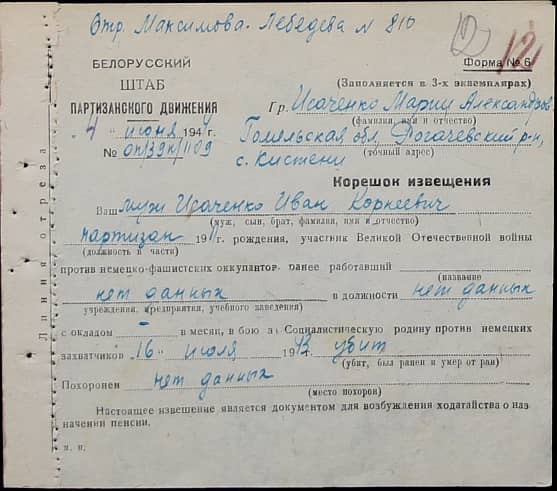 Отр. Максимова - Лебедева N 810
12 12
БЕЛОРУССКИЙ
ШТАБ
ПАРТИЗАНСКОГО ДВИЖЕНИЯ
4 " июня 194 г.
№ оп/39к/1109
Форма № 6
(Заполняется в 3-х экземплярах)
Гр. Исаченко Марии Александров
(фамилия, имя и отчество)
Гомельская обл, Рогачевский р-н,
(точный адрес)
с. Кистени
Корешок извещения
Ваш муж Исаченко Иван Корнеевич
(муж, сын, брат, фамилия, имя и отчество)
партизан 1911 г. рождения, участник Великой Отечественной войны
(должность в части)
против немецко-фашистских оккупантов, ранее работавший
(название
нет данных в должности нет данных
учреждения, предприятия, учебного заведения)
с окладом - в месяц, в бою за Социалистическую родину против немецких
захватчиков 16 " июля 1943 убит
(убит, был ранен и умер от ран)
Похоронен нет данных
(место похорон)
Настоящее извещение является документом для возбуждения ходатайства о наз-
начении пенсии.
Линия отреза